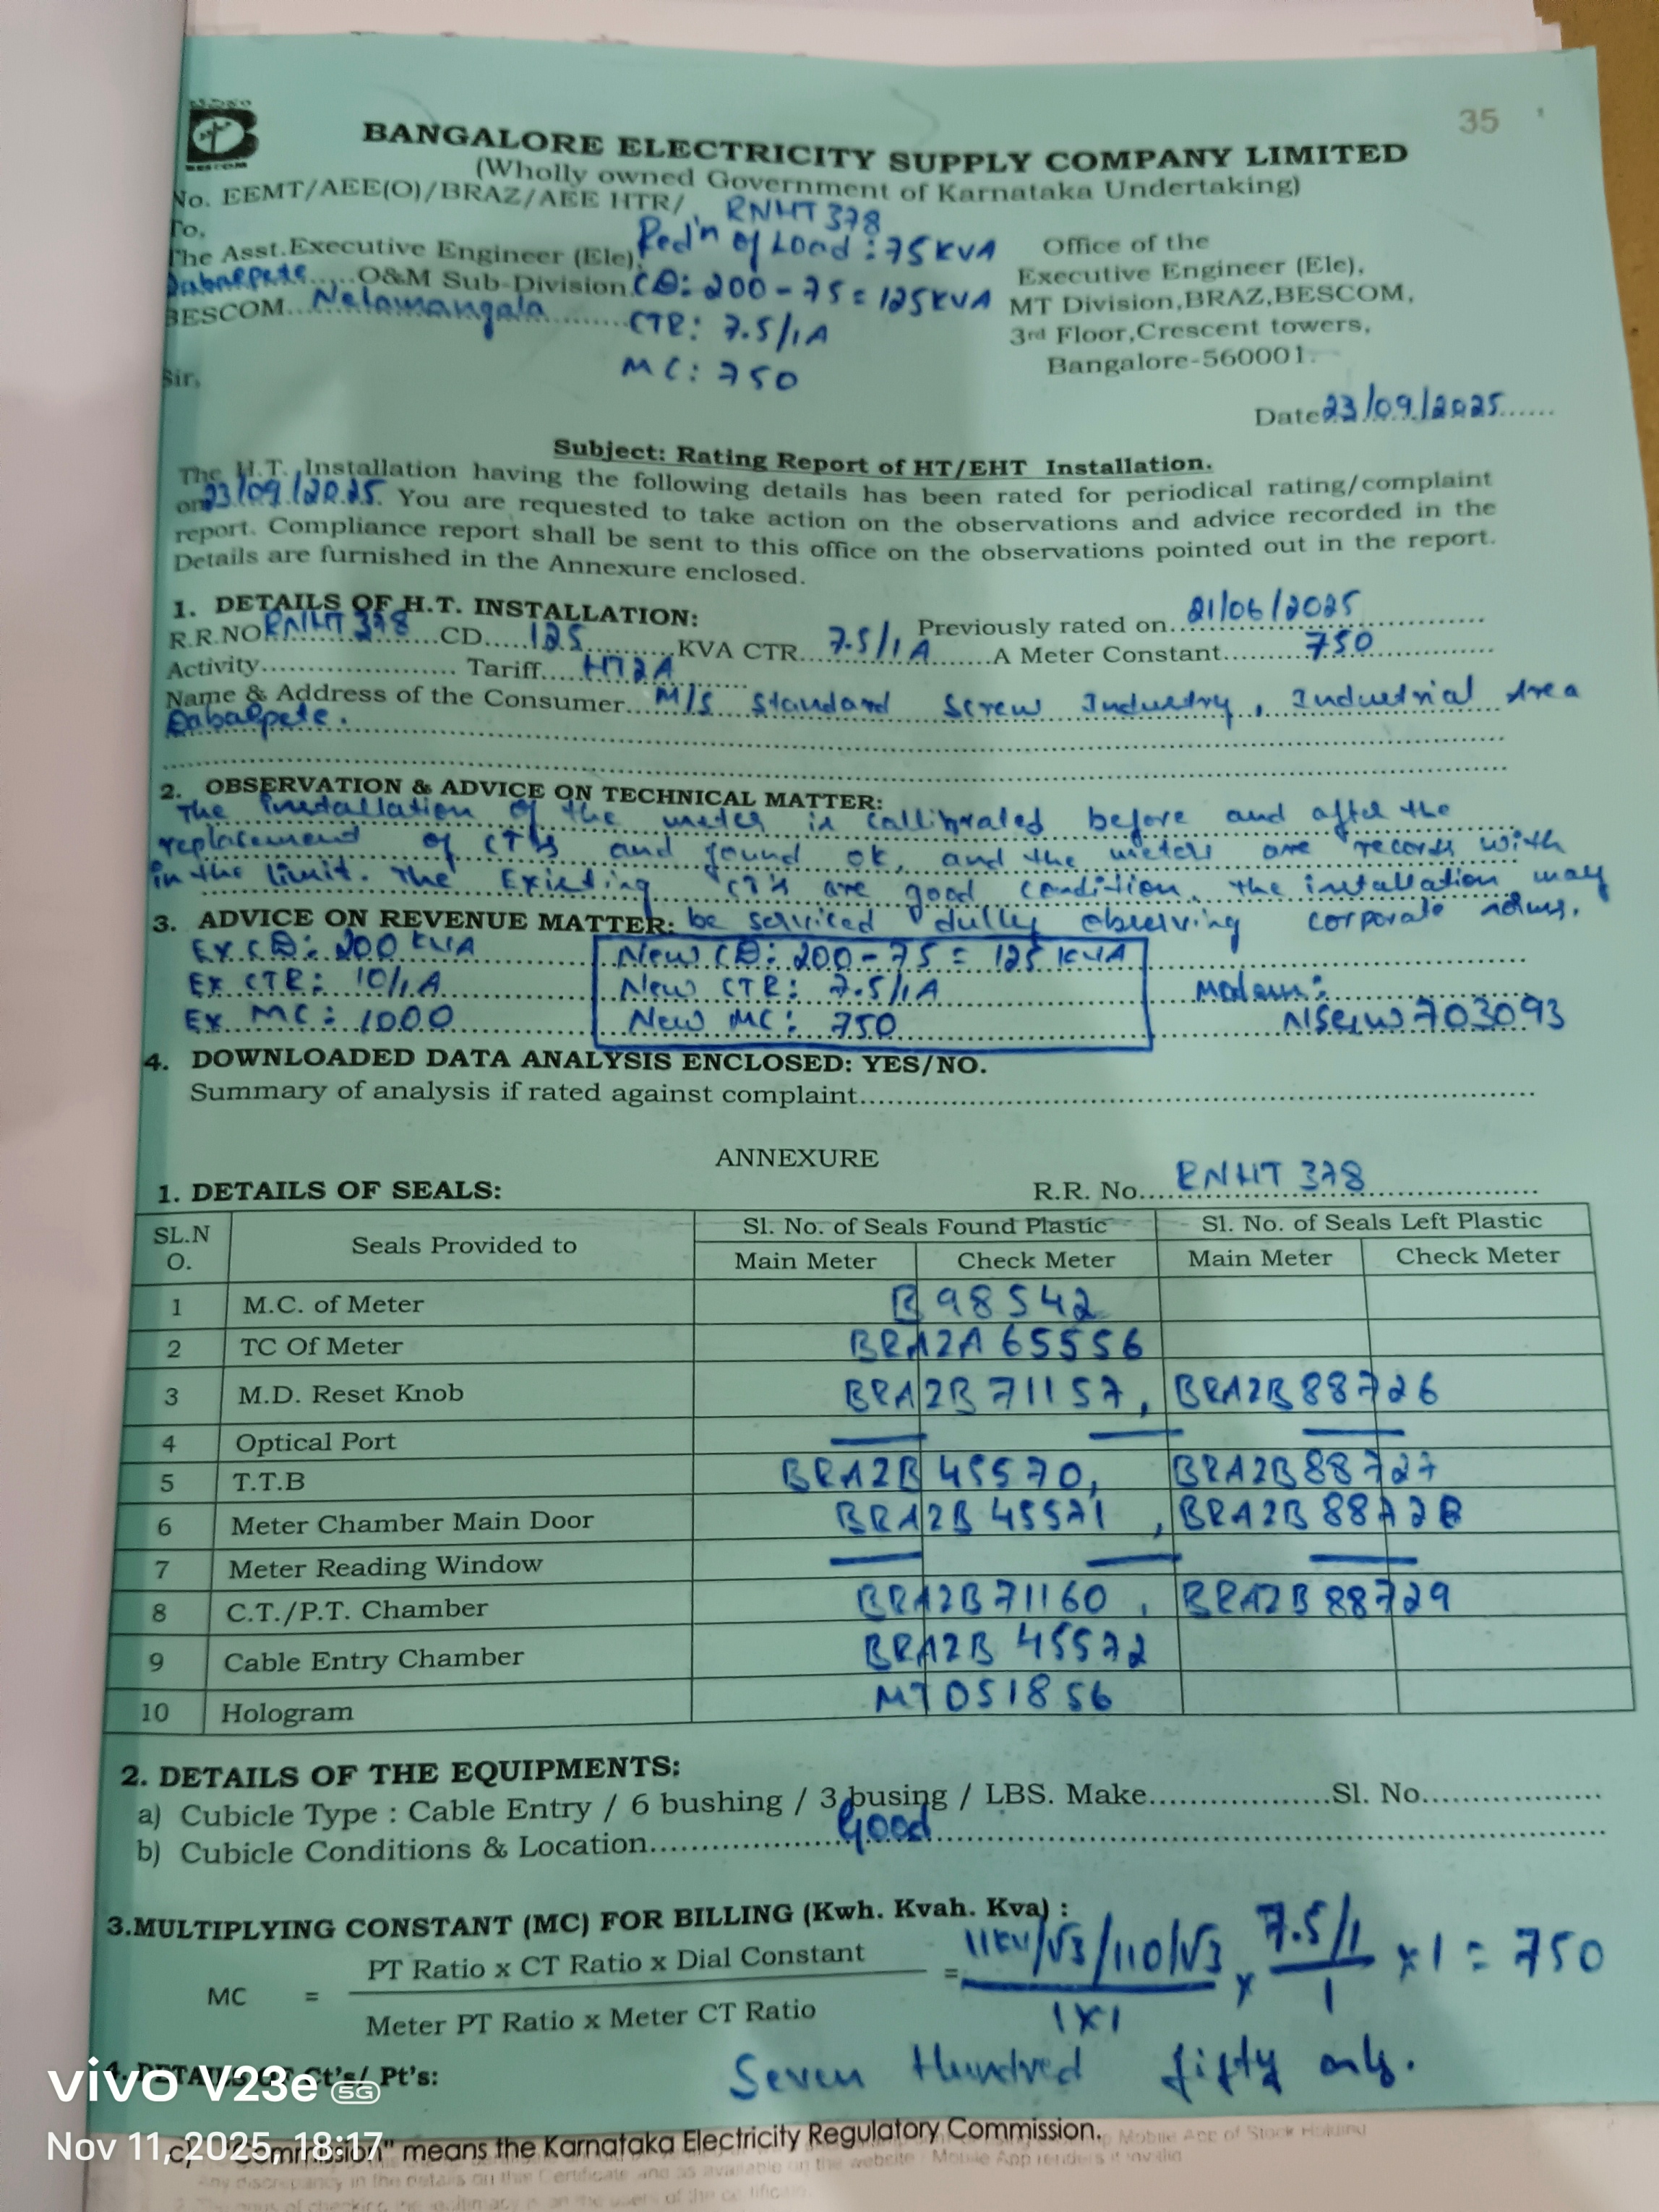 35
BESCOM
BANGALORE ELECTRICITY SUPPLY COMPANY LIMITED
(Wholly owned Government of Karnataka Undertaking)
No. EEMT/AEE(O)/BRAZ/AEE HTR/ RNHT 378
To,
The Asst.Executive Engineer (Ele), Red'n of Load: 75 KVA
Dabaspete.....O&M Sub-Division, CD: 200 - 75 = 125 KVA
BESCOM...Nelamangala.......... CTR: 7.5/1A
MC: 750
Office of the
Executive Engineer (Ele),
MT Division,BRAZ,BESCOM,
3rd Floor,Crescent towers,
Bangalore-560001.
Sir,
Date 23/09/2025......
Subject: Rating Report of HT/EHT Installation.
The H.T. Installation having the following details has been rated for periodical rating/complaint
on 23/09/2025. You are requested to take action on the observations and advice recorded in the
report. Compliance report shall be sent to this office on the observations pointed out in the report.
Details are furnished in the Annexure enclosed.
1. DETAILS OF H.T. INSTALLATION: Previously rated on 21/06/2025
R.R.NO RNHT 378 CD.....125..........KVA CTR...7.5/1A......A Meter Constant........750
Activity.................... Tariff....HT2A
Name & Address of the Consumer...M/s Standard Screw Industry, Industrial Area
Dabaspete.
2. OBSERVATION & ADVICE ON TECHNICAL MATTER:
The installation of the meter is callibrated before and after the
replacement of CT's and found ok, and the meters are records with
in the limit. The Existing CT's are good condition. The installation may
3. ADVICE ON REVENUE MATTER: be serviced dully observing corporate norms.
Ex CD: 200 KVA New CD: 200 - 75 = 125 KVA
Ex CTR: 10/1A New CTR: 7.5/1A Modem:
Ex MC: 1000 New MC: 750 703093
4. DOWNLOADED DATA ANALYSIS ENCLOSED: YES/NO.
Summary of analysis if rated against complaint..........
ANNEXURE
1. DETAILS OF SEALS: R.R. No....RNHT 378
SL.N O. Seals Provided to Sl. No. of Seals Found Plastic Sl. No. of Seals Left Plastic
Main Meter Check Meter Main Meter Check Meter
1 M.C. of Meter B 98542
2 TC Of Meter BRAZA 65556
3 M.D. Reset Knob BRAZB 71157, BRAZB 88726
4 Optical Port — — —
5 T.T.B BRAZB 45570, BRAZB 88727
6 Meter Chamber Main Door BRAZB 45571, BRAZB 88728
7 Meter Reading Window — — —
8 C.T./P.T. Chamber BRAZB 71160, BRAZB 88729
9 Cable Entry Chamber BRAZB 45572
10 Hologram MT 051856
2. DETAILS OF THE EQUIPMENTS:
a) Cubicle Type : Cable Entry / 6 bushing / 3 busing / LBS. Make..................Sl. No..................
b) Cubicle Conditions & Location..........Good..........
3.MULTIPLYING CONSTANT (MC) FOR BILLING (Kwh. Kvah. Kva) :
MC = PT Ratio x CT Ratio x Dial Constant = 11KV/√3/110/√3 x 7.5/1 x 1 = 750
Meter PT Ratio x Meter CT Ratio 1x1 1
4. DETAILS OF Ct's/ Pt's: Seven Hundred fifty only.
vivo V23e 5G
Nov 11, 2025, 18:17
c) "Commission" means the Karnataka Electricity Regulatory Commission.